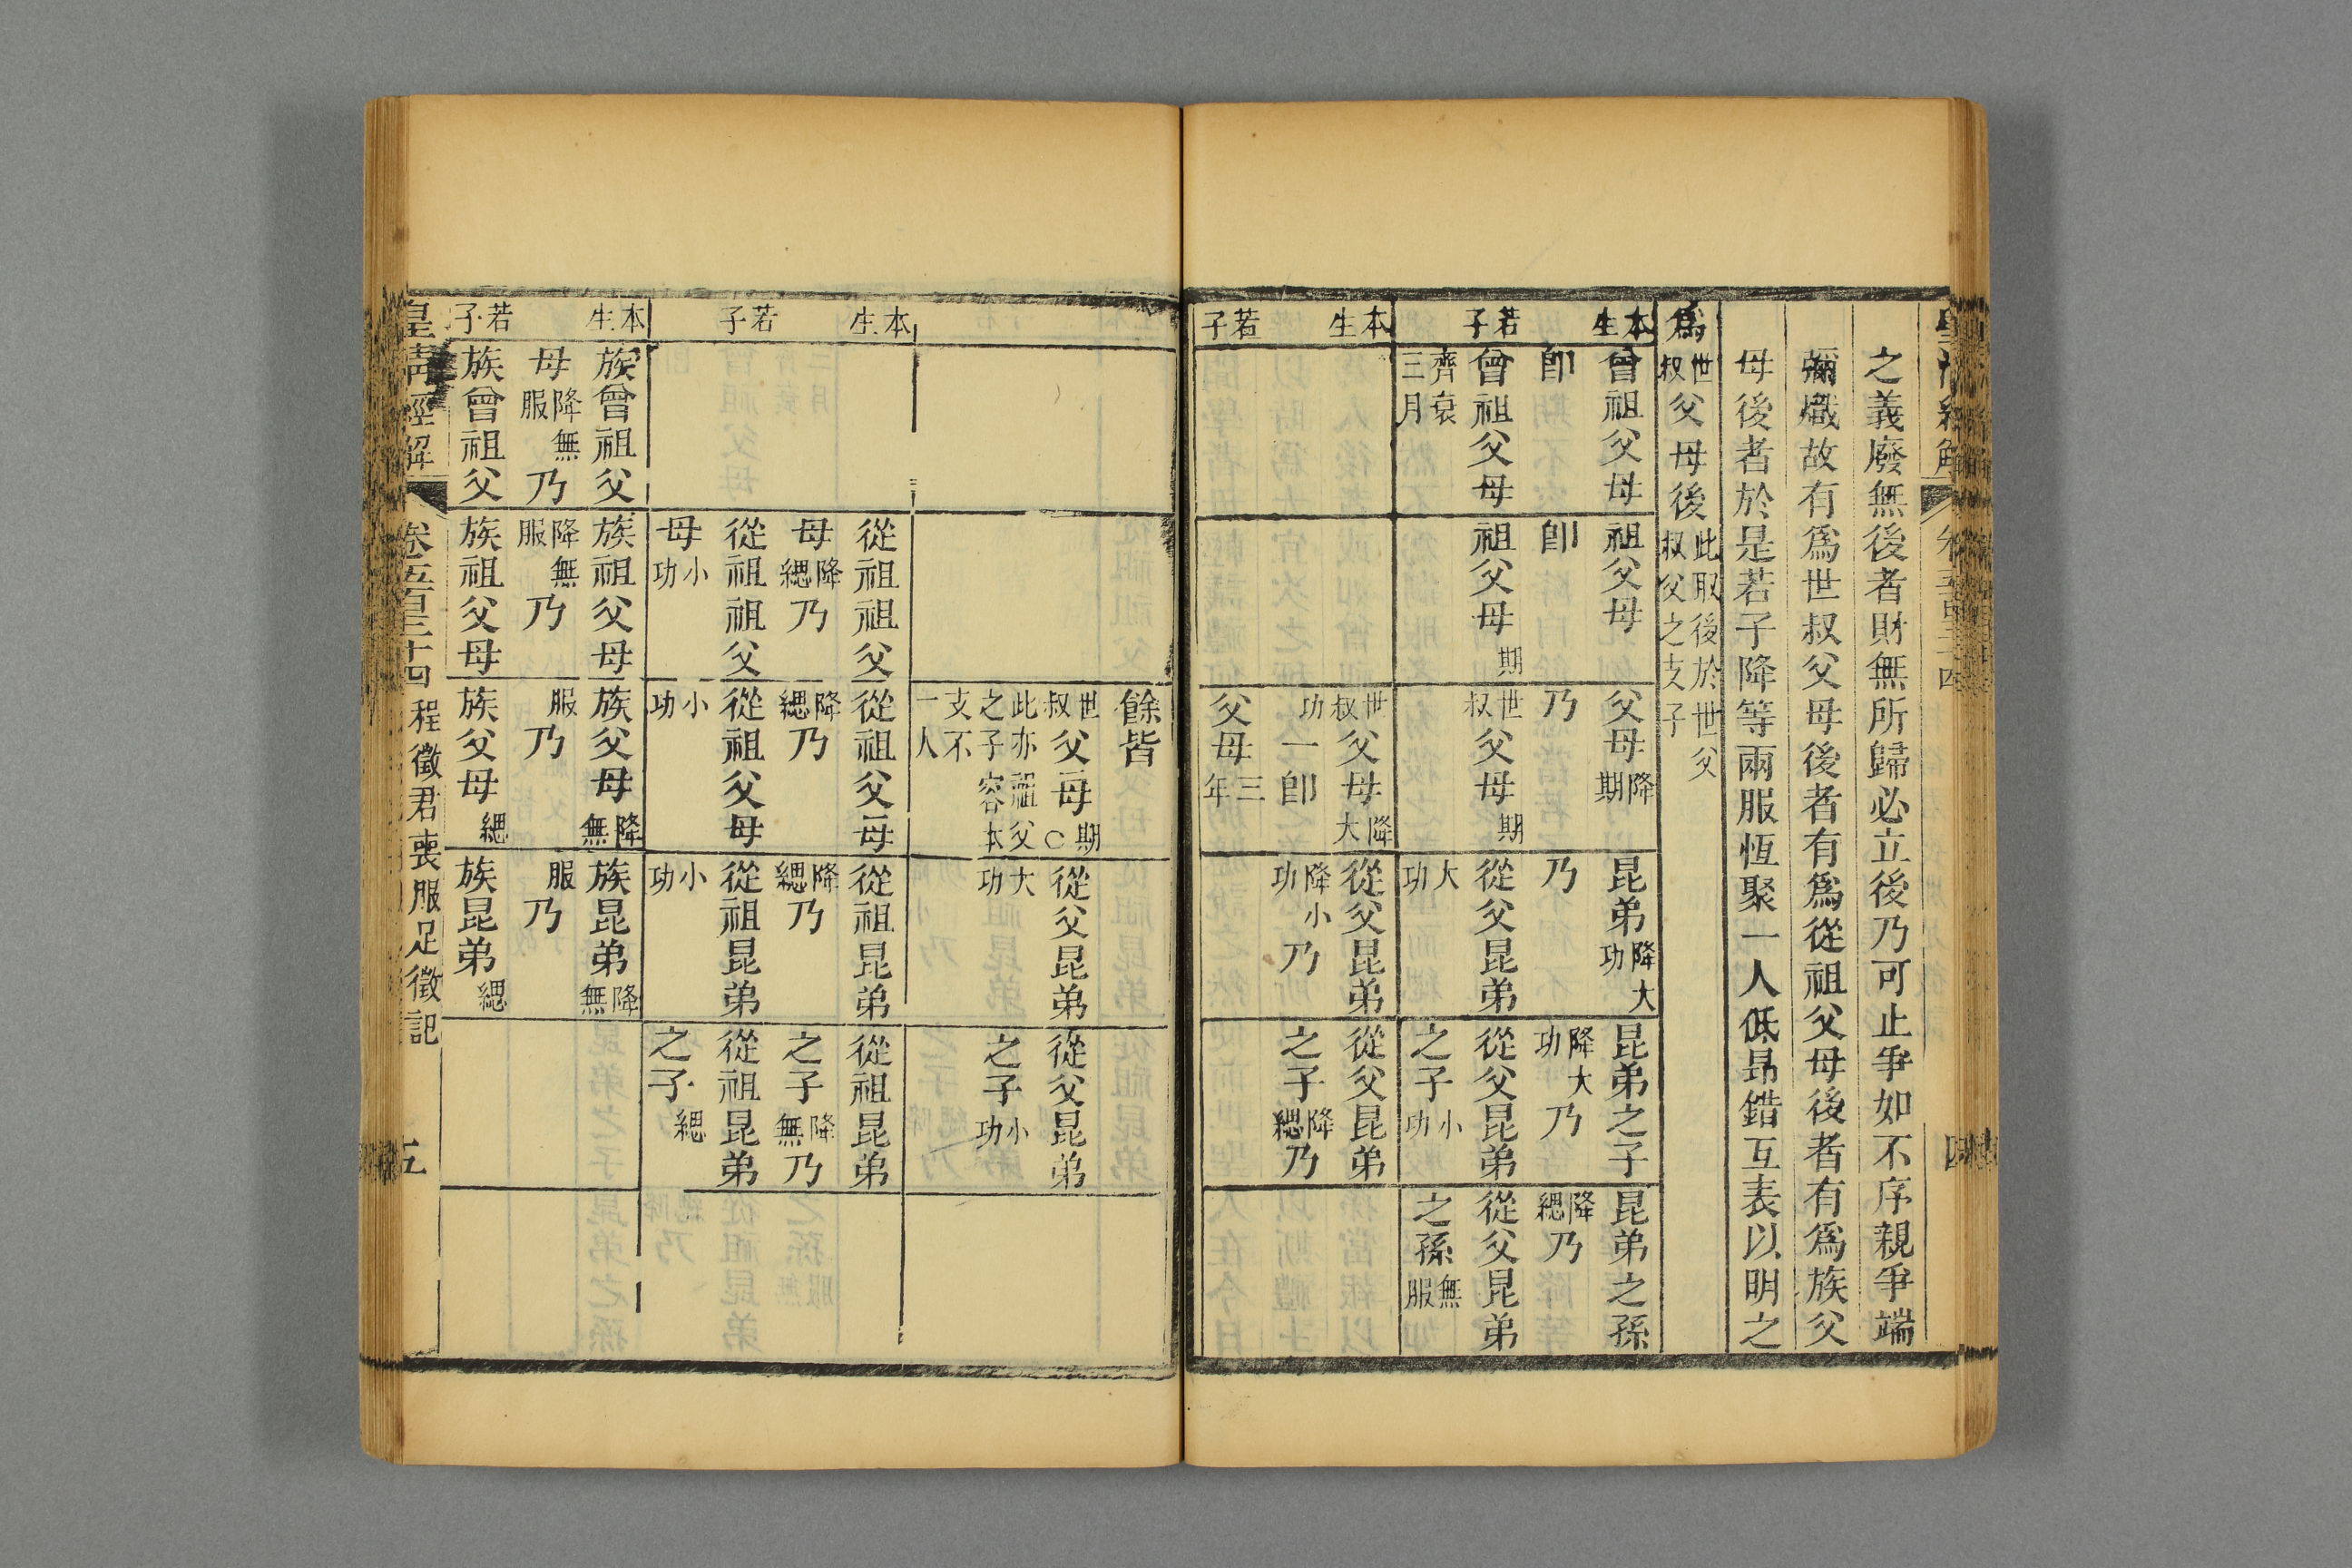 之義廢無後者財無所歸必立後乃可止爭如不序親爭端
彌熾故有爲世叔父母後者有爲從祖父母後者有爲族父
母後者於是若子降等兩服恆聚一人低昻錯互表以明之
爲世叔父母後此取後於世父叔父之支子
本生
曾祖父母
祖父母
父母降期
昆弟降大功
昆弟之子降大功
昆弟之孫降緦
卽
卽
乃
乃
乃
乃
若子
曾祖父母齊衰三月
祖父母期
世叔父母期
從父昆弟大功
從父昆弟之子小功
從父昆弟之孫無服
本生
世叔父母降大功一卽
從父昆弟降小功乃
從父昆弟之子降緦乃
若子
父母三年
餘皆
世叔父母期〇此亦祖父之子容本支不一人
從父昆弟大功
從父昆弟之子小功
本生
從祖祖父母降緦乃
從祖父母降緦乃
從祖昆弟降緦乃
從祖昆弟之子降無乃
若子
從祖祖父母小功
從祖父母小功
從祖昆弟小功
從祖昆弟之子緦
本生
族曾祖父母降無服乃
族祖父母降無服乃
族父母降無服乃
族昆弟降無服乃
若子
族曾祖父
族祖父母
族父母緦
族昆弟緦
皇淸經解
卷五百二十四
程徵君喪服足徵記
五